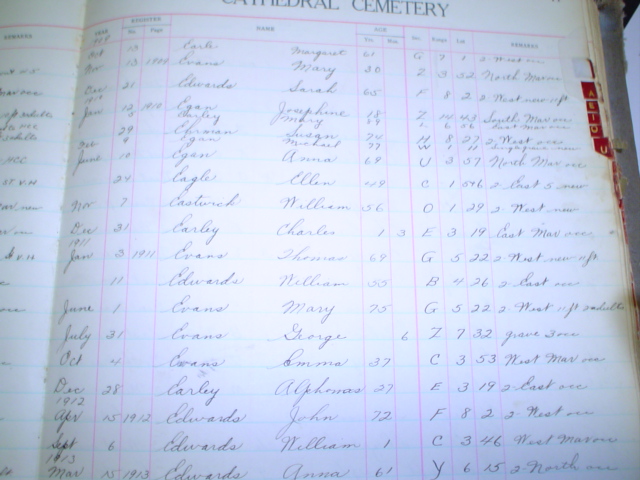 CATHEDRAL CEMETERY
REMARKS YEAR REGISTER No. Page NAME AGE Yrs. Mos. Sec. Range Lot REMARKS
Oct 13 Earle Margaret 61 G 7 1 2 West
Nov 13 1909 Evans Mary 30 Z 3 52 North Mar occ
Dec 21 Edwards Sarah 65 F 8 2 2 West new 11 ft
1910
Jan 12 1910 Egan Josephine 18 Z 14 43 South Mar occ
Mary 6 56 East Mar occ
29 Ehrman Susan 74 H 8 27 2 West occ
Feb Egan Michael 77 W 1
June 10 Egan Anna 69 U 3 57 North Mar occ
24 Eagle Ellen 49 C 1 2 East 5 new
Nov 7 Eastwick William 56 O 1 29 2 West new
Dec 31 Earley Charles 1 3 E 3 19 East Mar occ
1911
Jan 3 1911 Evans Thomas 69 G 5 22 2 West new 11 ft
11 Edwards William 55 B 4 26 2 East occ
June 1 Evans Mary 75 G 5 22 2 West 11 ft 2 adults
July 31 Evans George 6 Z 7 32 grave 3 occ
Oct 4 Evans Emma 37 C 3 53 West Mar occ
Dec 28 Earley Alphonsas 27 E 3 19 2 East occ
1912
Apr 15 1912 Edwards John 72 F 8 2 2 West occ
Sept 6 Edwards William 1 C 3 46 West Mar occ
1913
Mar 15 1913 Edwards Anna 61 Y 6 15 2 North occ